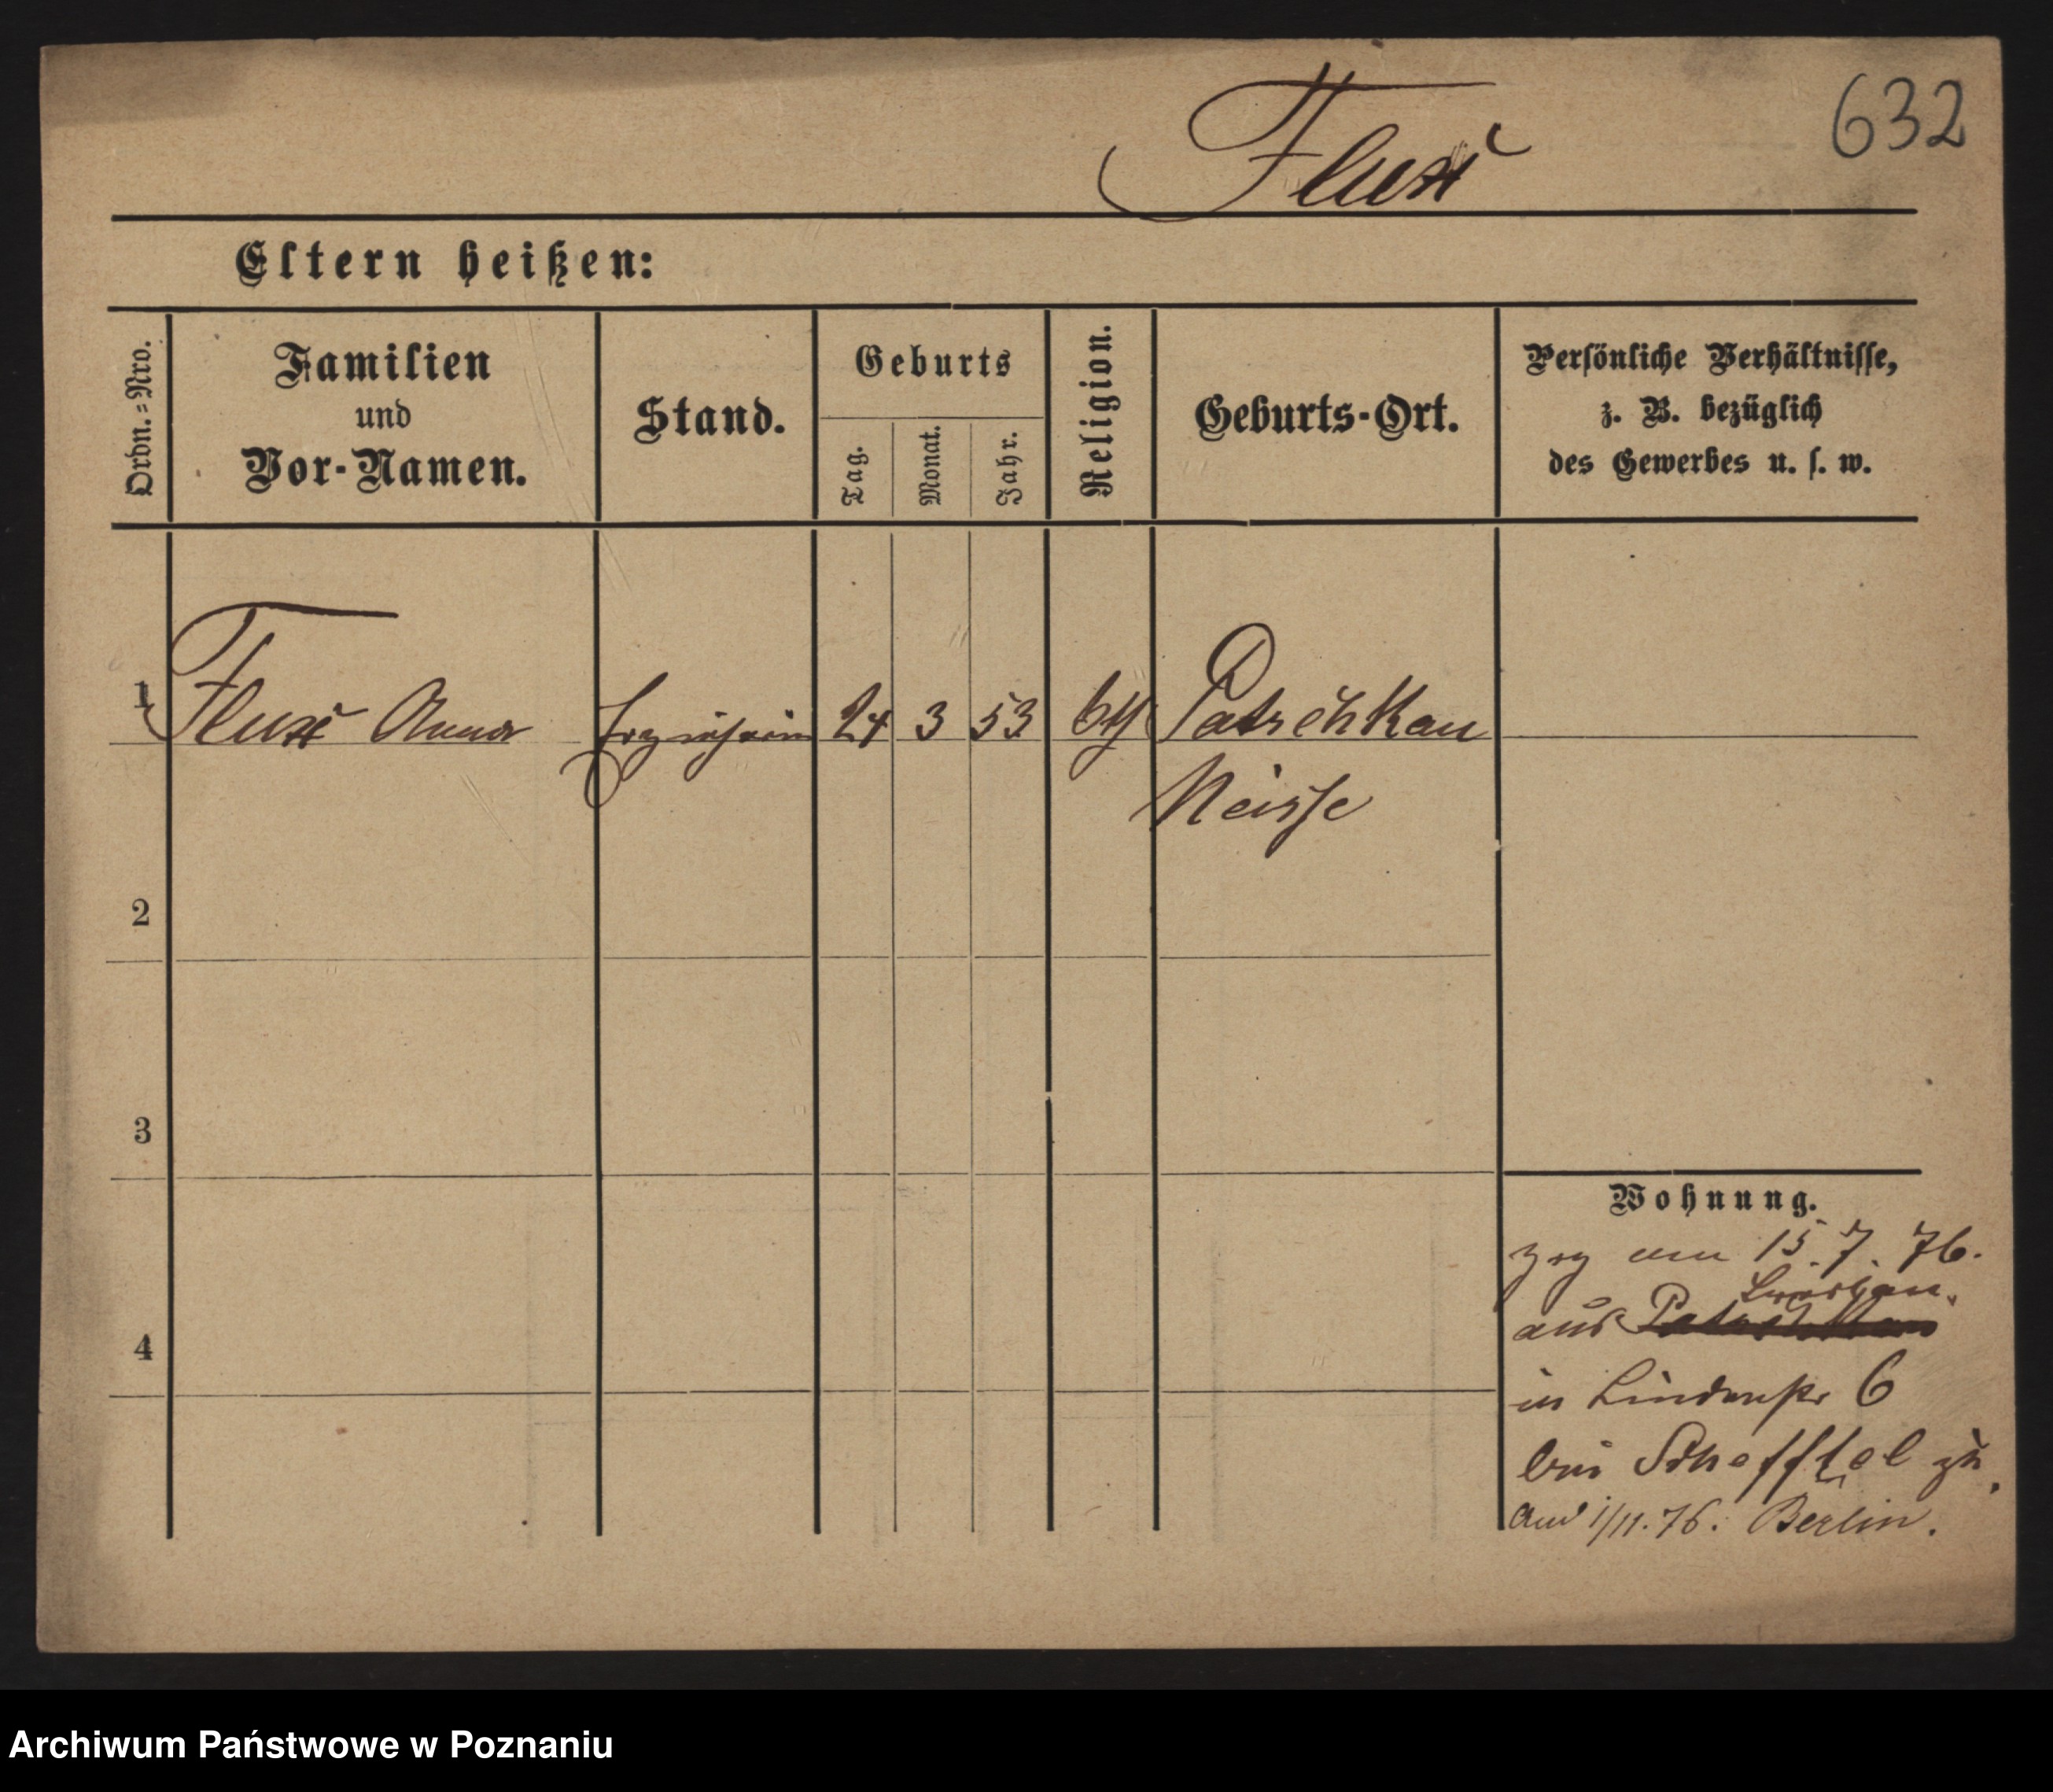 632
Eltern heißen:
Ordn.=Nro.
Familien
und
Vor-Namen.
Stand.
Geburts
Tag.
Monat.
Jahr.
Religion.
Geburts-Ort.
Persönliche Verhältnisse,
z. B. bezüglich
des Gewerbes u. s. w.
1 Anna Erzieherin 24 3 53 Patschkau
Neisse
2
3
4
Wohnung.
zog am 15.7.76.
aus
in Lindenstr 6
bei Schefftel zu.
And 1/11.76. Berlin.
Archiwum Państwowe w Poznaniu